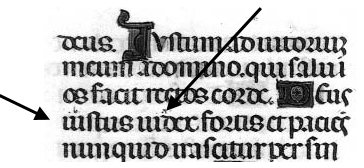 deus. IVstum adiutorium
meum adomino. qui salui
os facit rectos corde. DEus
iustus iudex fortis et pacies
nunquid irascitur per sin